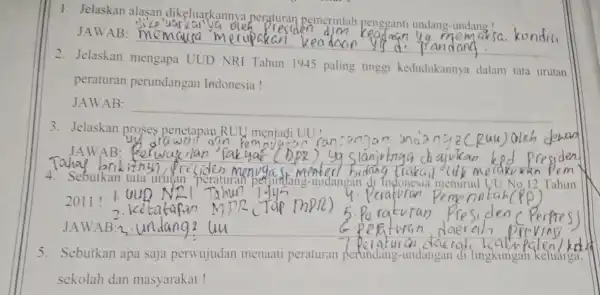 1. Jelaskan alasan dikeluarkannya peraturan pemerintah pengganti undang-undang !
dikeluarkanya oleh Presiden dlm keadaan yg memaksa. kondisi
JAWAB: memaksa merupakan keadaan yg di pandang
2. Jelaskan mengapa UUD NRI Tahun 1945 paling tinggi kedudukannya dalam tata urutan
peraturan perundangan Indonesia !
JAWAB:
3. Jelaskan proses penetapan RUU menjadi UU !
yg drawali dan rancangan undang2 (RUU) oleh dewan
JAWAB: Perwakilan Rakyat (DPR) yg slanjutnya diajukan kpd Presiden
Tahap brikitnya, Presiden menugasi menteri bidang trakait utk melakukan Pem
4. Sebutkan tata urutan peraturan perundang-undangan di Indonesia menurud UU No 12 Tahun
2011 ! 1. UUD NRI Tahun 1945 4. Peraturan Pemerintah (PP)
2. Ketatapan MPR (Tap MPR) 5. Peraturan Presiden (Perpres)
JAWAB: 3. undang2 UU 6 peraturan daerah Provinsi
7. Peraturan daerah kabupaten/kota
5. Sebutkan apa saja perwujudan menaati peraturan perundang-undangan di lingkungan keluarga,
sekolah dan masyarakat !